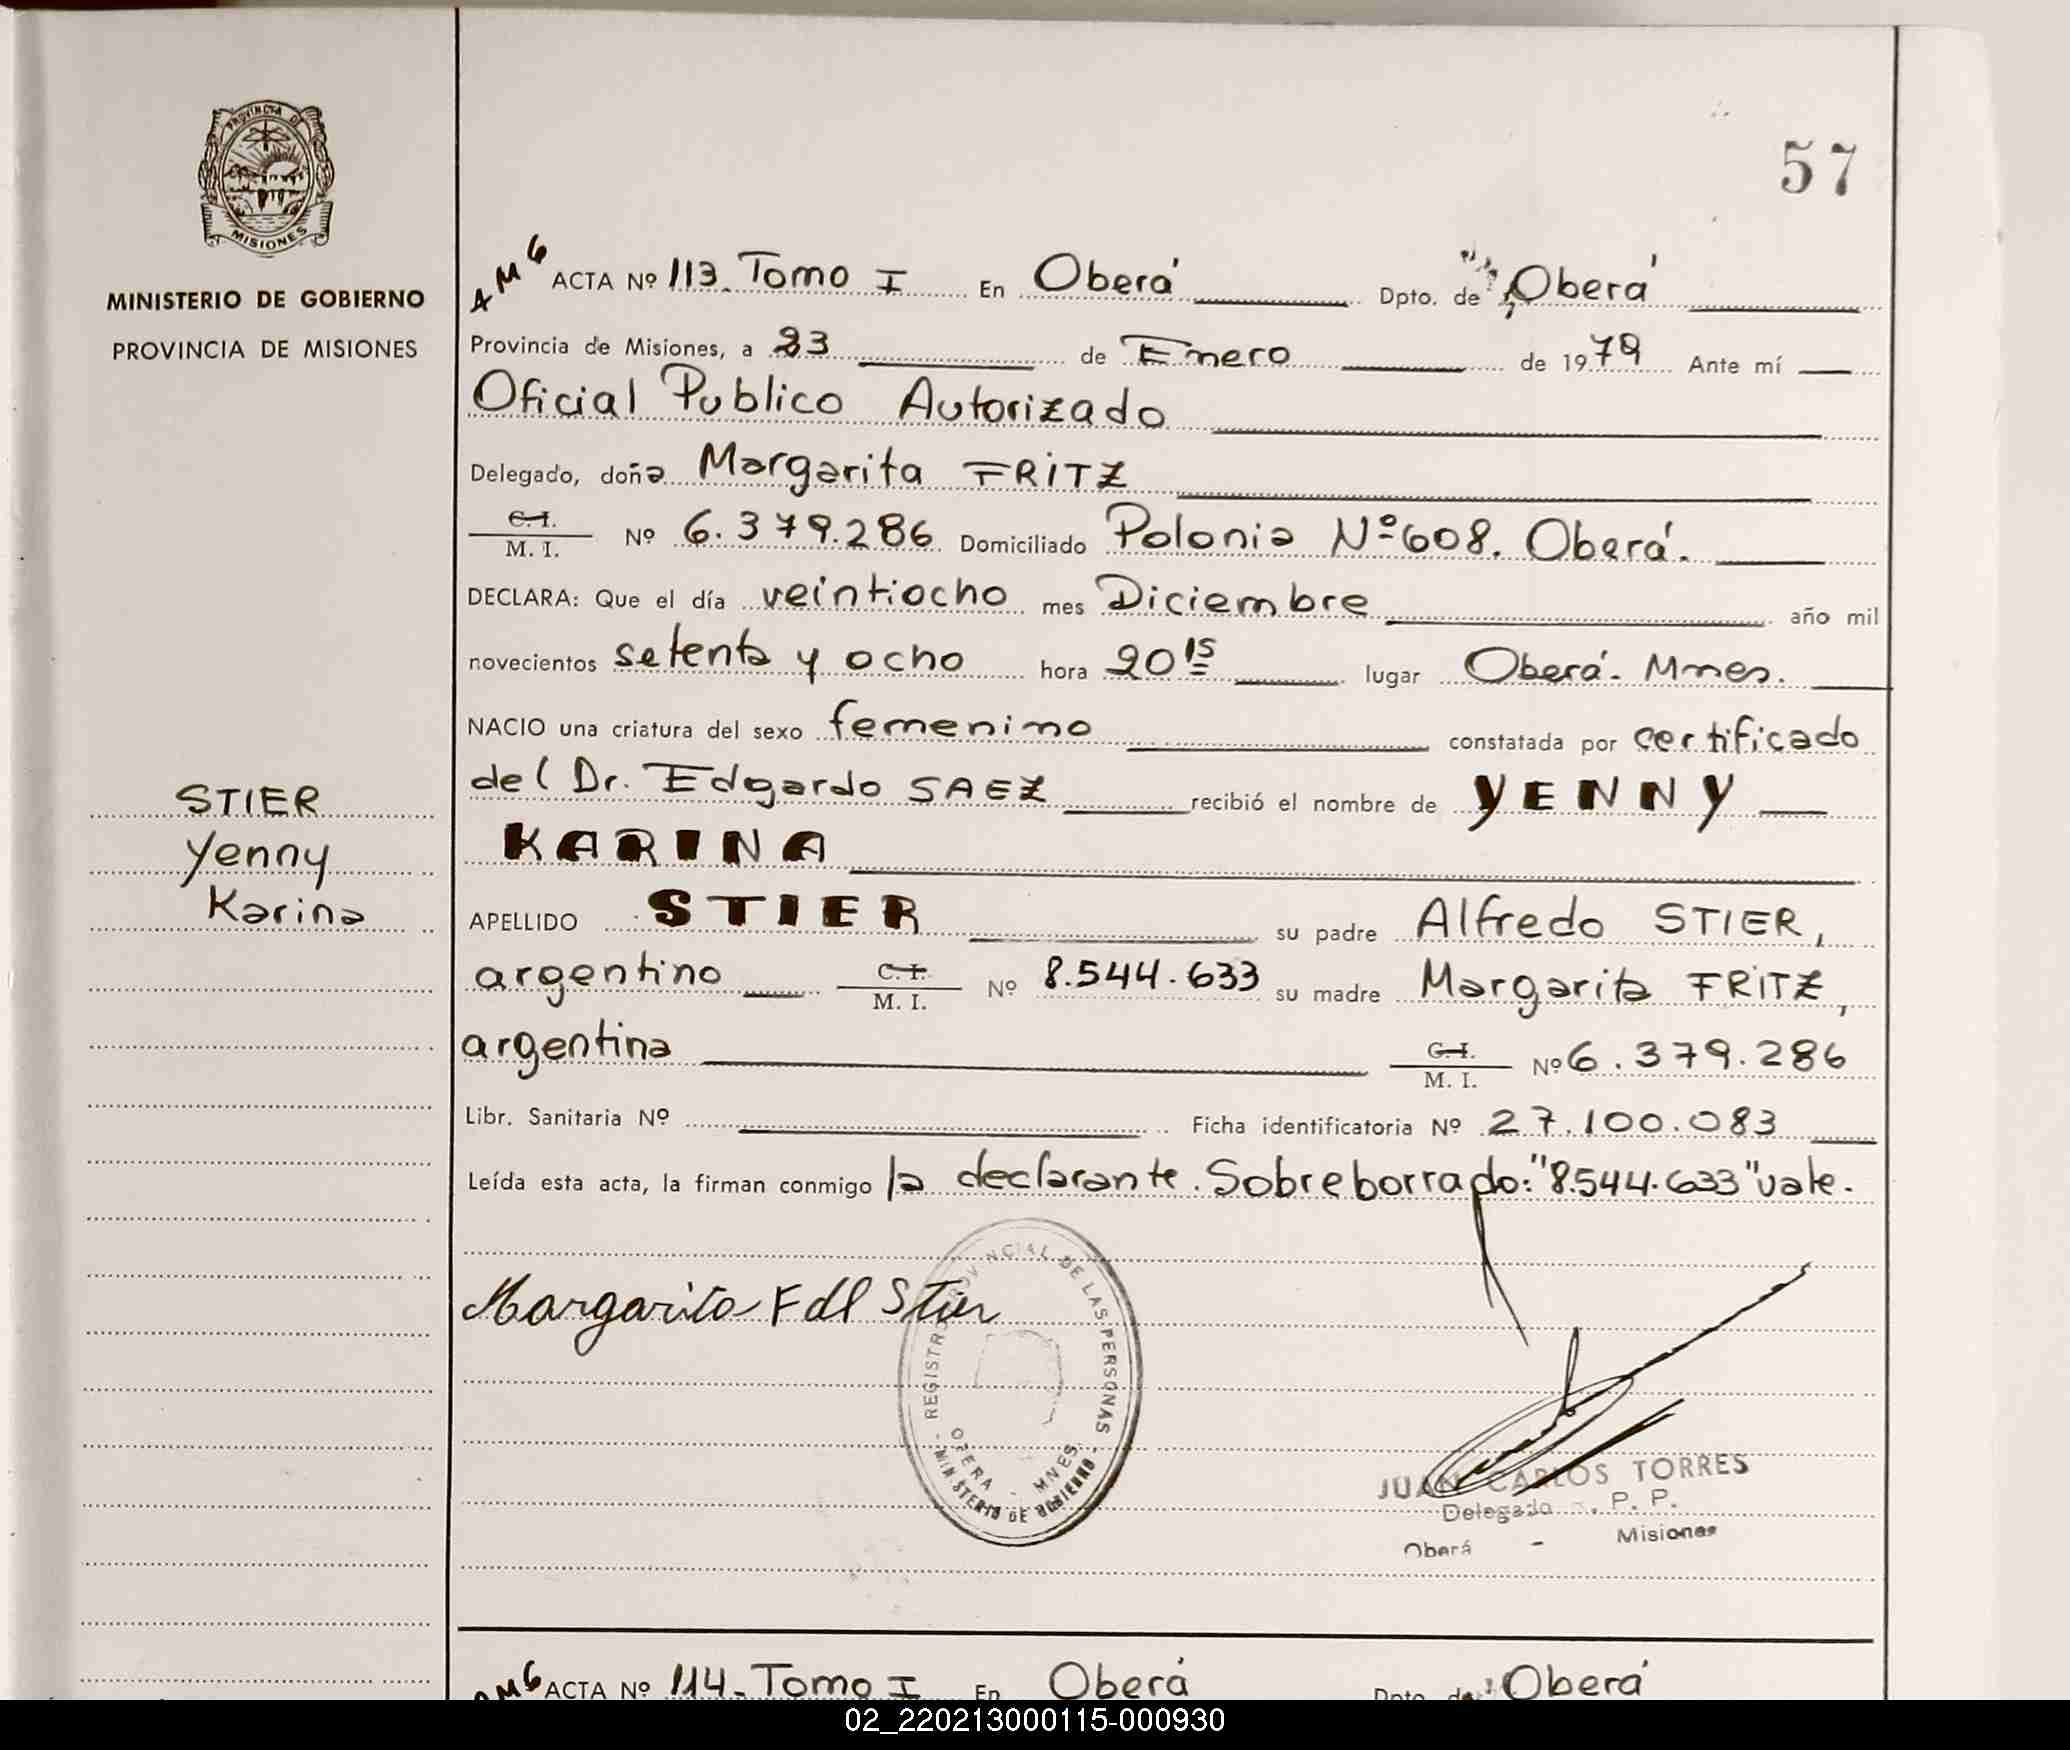 PROVINCIA DE
MISIONES
MINISTERIO DE GOBIERNO
PROVINCIA DE MISIONES
STIER
Yenny
Karina
57
AMG ACTA Nº 113. Tomo I En Oberá Dpto. de Oberá
Provincia de Misiones, a 23 de Enero de 1979 Ante mí
Oficial Publico Autorizado
Delegado, doña Margarita FRITZ
C. I.
M. I. Nº 6.379.286 Domiciliado Polonia Nº 608. Oberá.
DECLARA: Que el día veintiocho mes Diciembre año mil
novecientos setenta y ocho hora 20 15 lugar Oberá. Mnes.
NACIO una criatura del sexo femenino constatada por certificado
del Dr. Edgardo SAEZ recibió el nombre de YENNY
KARINA
APELLIDO STIER su padre Alfredo STIER,
argentino C. I.
M. I. Nº 8.544.633 su madre Margarita FRITZ,
argentina C. I.
M. I. Nº 6.379.286
Libr. Sanitaria Nº Ficha identificatoria Nº 27.100.083
Leída esta acta, la firman conmigo la declarante. Sobreborrado: "8.544.633" vale.
Margarita F dl Stier
REGISTRO PROVINCIAL DE LAS PERSONAS
OBERA - MNES.
- MINISTERIO DE GOBIERNO -
JUAN CARLOS TORRES
Delegado P. P.
Oberá - Misiones
AMG ACTA Nº 114. Tomo I En Oberá Dpto. de Oberá
02_220213000115-000930